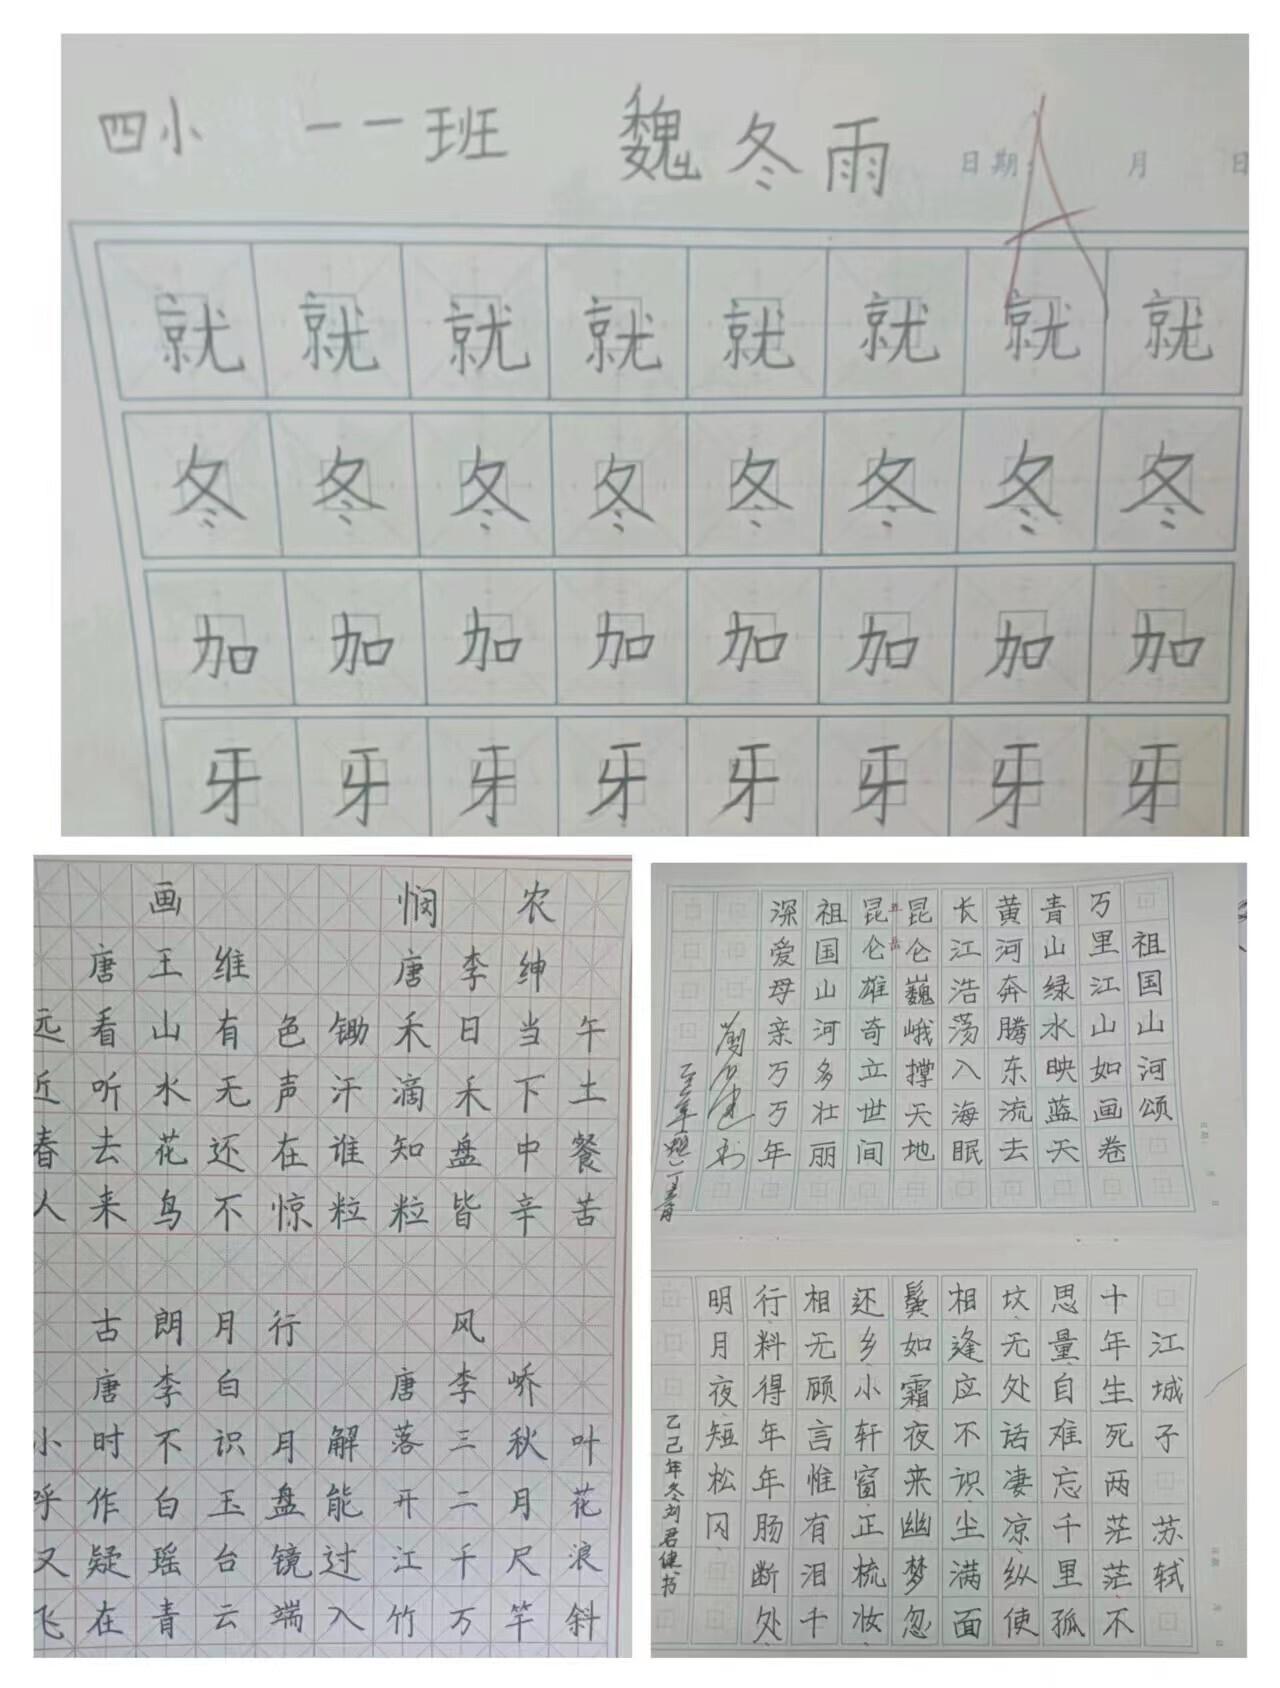 四小 一一班 魏冬雨
日期: 月 日
A
就就就就就就就就
冬冬冬冬冬冬冬冬
加加加加加加加加
牙牙牙牙牙牙牙牙
画
唐王维
远看山有色
近听水无声
春去花还在
人来鸟不惊
悯农
唐李绅
锄禾日当午
汗滴禾下土
谁知盘中餐
粒粒皆辛苦
古朗月行
唐李白
小时不识月
呼作白玉盘
又疑瑶台镜
飞在青云端
风
唐李峤
解落三秋叶
能开二月花
过江千尺浪
入竹万竿斜
祖国山河颂
万里江山如画卷
青山绿水映蓝天
黄河奔腾东流去
长江浩荡入海眠
昆仑巍峨撑天地
五岳
昆仑雄奇立世间
祖国山河多壮丽
深爱母亲万万年
江城子 苏轼
十年生死两茫茫不
思量自难忘千里孤
坟无处话凄凉纵使
相逢应不识尘满面
鬓如霜夜来幽梦忽
还乡小轩窗正梳妆
相无顾言惟有泪千
行料得年年肠断处
明月夜短松冈
乙巳年冬刘君健书